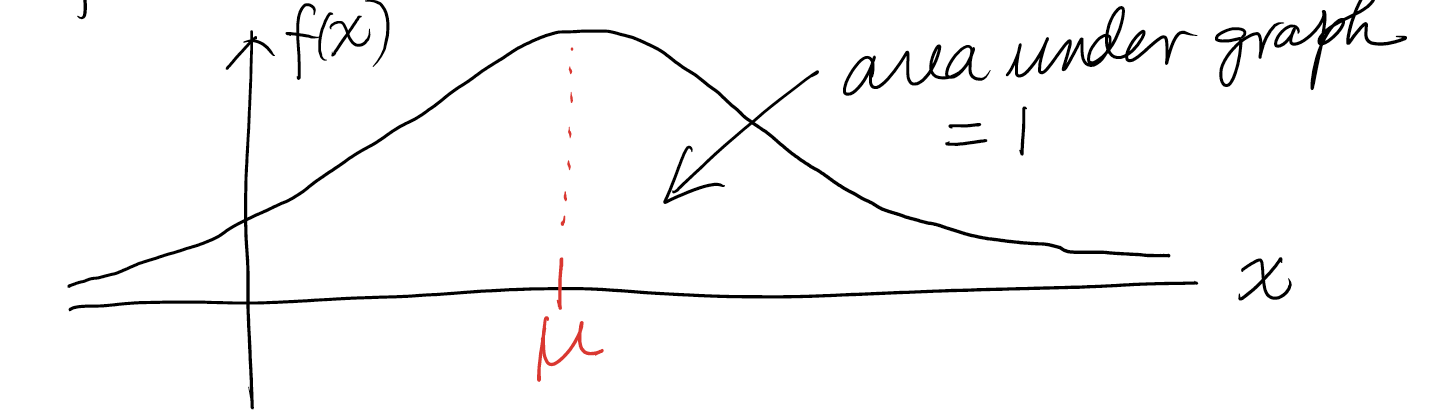 f(x)
area under graph
= 1
x
μ